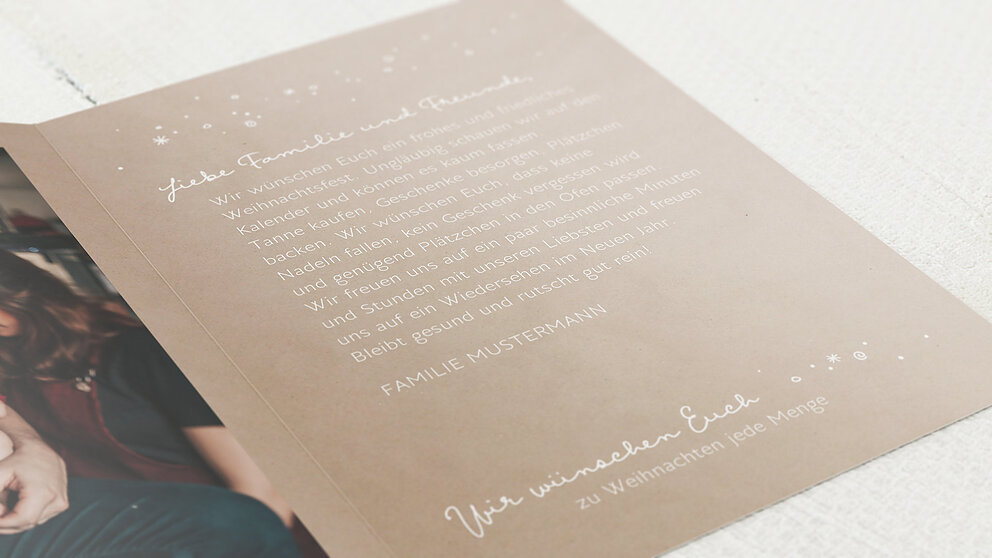 Liebe Familie und Freunde,
Wir wünschen Euch ein frohes und friedliches
Weihnachtsfest. Ungläubig schauen wir auf den
Kalender und können es kaum fassen.
Tanne kaufen, Geschenke besorgen, Plätzchen
backen. Wir wünschen Euch, dass keine
Nadeln fallen, kein Geschenk vergessen wird
und genügend Plätzchen in den Ofen passen.
Wir freuen uns auf ein paar besinnliche Minuten
und Stunden mit unseren Liebsten und freuen
uns auf ein Wiedersehen im Neuen Jahr
Bleibt gesund und rutscht gut rein!
FAMILIE MUSTERMANN
Wir wünschen Euch
zu Weihnachten jede Menge